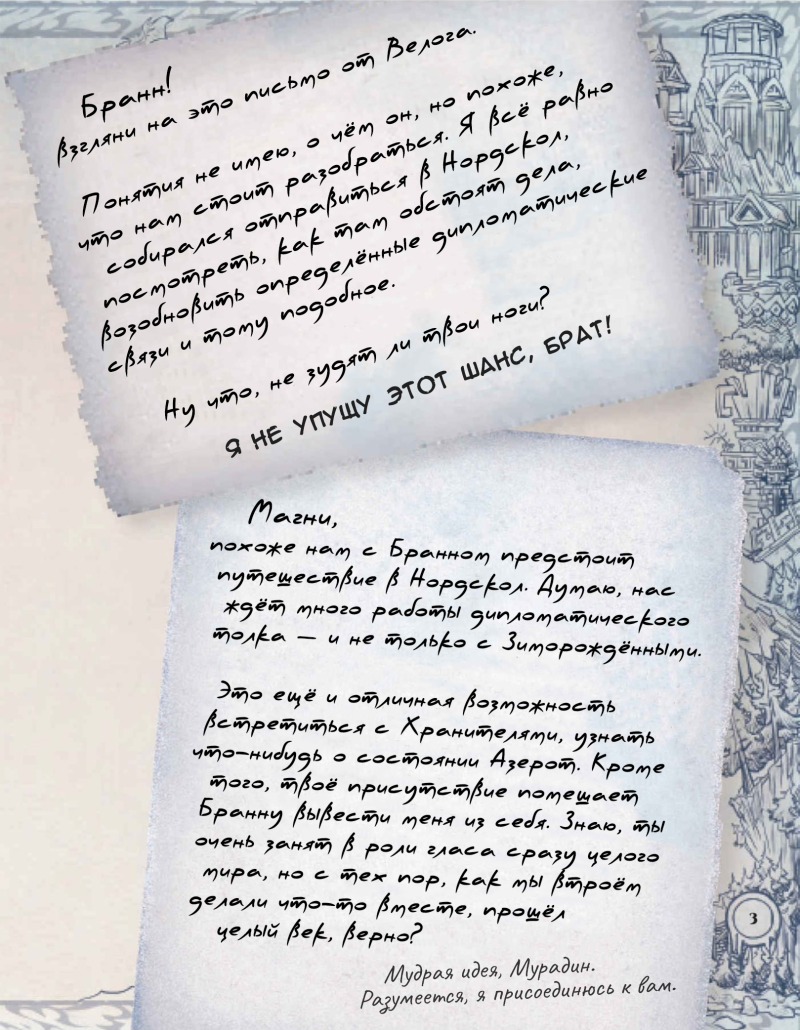 Бранн!
взгляни на это письмо от Велога.
Понятия не имею, о чём он, но похоже,
что нам стоит разобраться. Я всё равно
собирался отправиться в Нордскол,
посмотреть, как там обстоят дела,
возобновить определённые дипломатические
связи и тому подобное.
Ну что, не зудят ли твои ноги?
Я НЕ УПУЩУ ЭТОТ ШАНС, БРАТ!
Магни,
похоже нам с Бранном предстоит
путешествие в Нордскол. Думаю, нас
ждёт много работы дипломатического
толка — и не только с Зиморождёнными.
Это ещё и отличная возможность
встретиться с Хранителями, узнать
что-нибудь о состоянии Азерот. Кроме
того, твоё присутствие помешает
Бранну вывести меня из себя. Знаю, ты
очень занят в роли гласа сразу целого
мира, но с тех пор, как мы втроём
делали что-то вместе, прошёл
целый век, верно?
Мудрая идея, Мурадин.
Разумеется, я присоединюсь к вам.
3